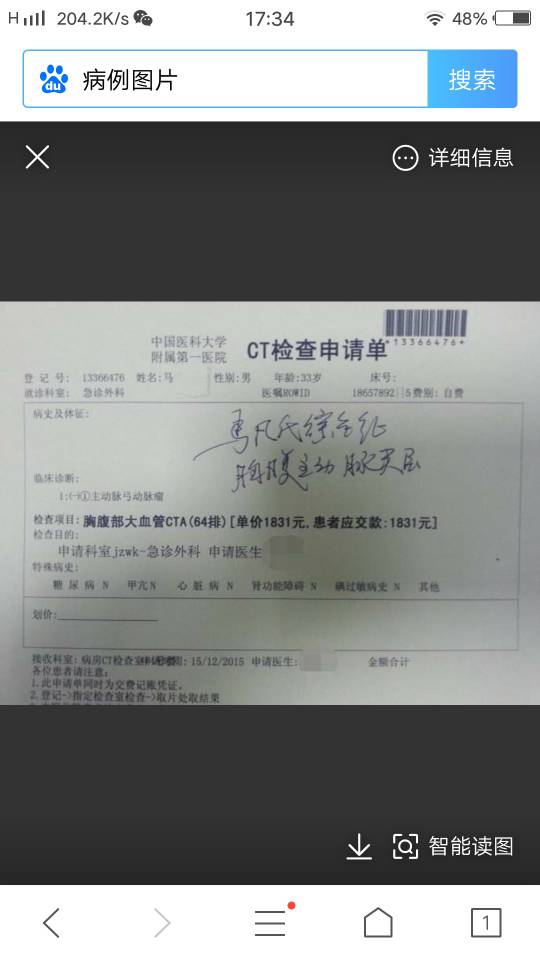 H 204.2K/s 17:34 48%
du 病例图片 搜索
详细信息
中国医科大学
附属第一医院 CT检查申请单
*13366476*
登 记 号: 13366476 姓名:马 性别:男 年龄:33岁 床号:
就诊科室: 急诊外科 医嘱ROWID 18657892||5 费别: 自费
病史及体征:
马凡氏综合征
胸腹主动脉夹层
临床诊断:
1:(-)①主动脉弓动脉瘤
检查项目: 胸腹部大血管CTA(64排)[单价1831元,患者应交款:1831元]
检查目的:
申请科室jzwk-急诊外科 申请医生
特殊病史:
糖 尿 病 N 甲亢N 心 脏 病 N 肾功能障碍 N 碘过敏病史 N 其他
划价:
接收科室: 病房CT检查室 15/12/2015 申请医生: 金额合计
各位患者请注意:
1.此申请单同时为交费记账凭证。
2.登记->指定检查室检查->取片处取结果
智能读图
1